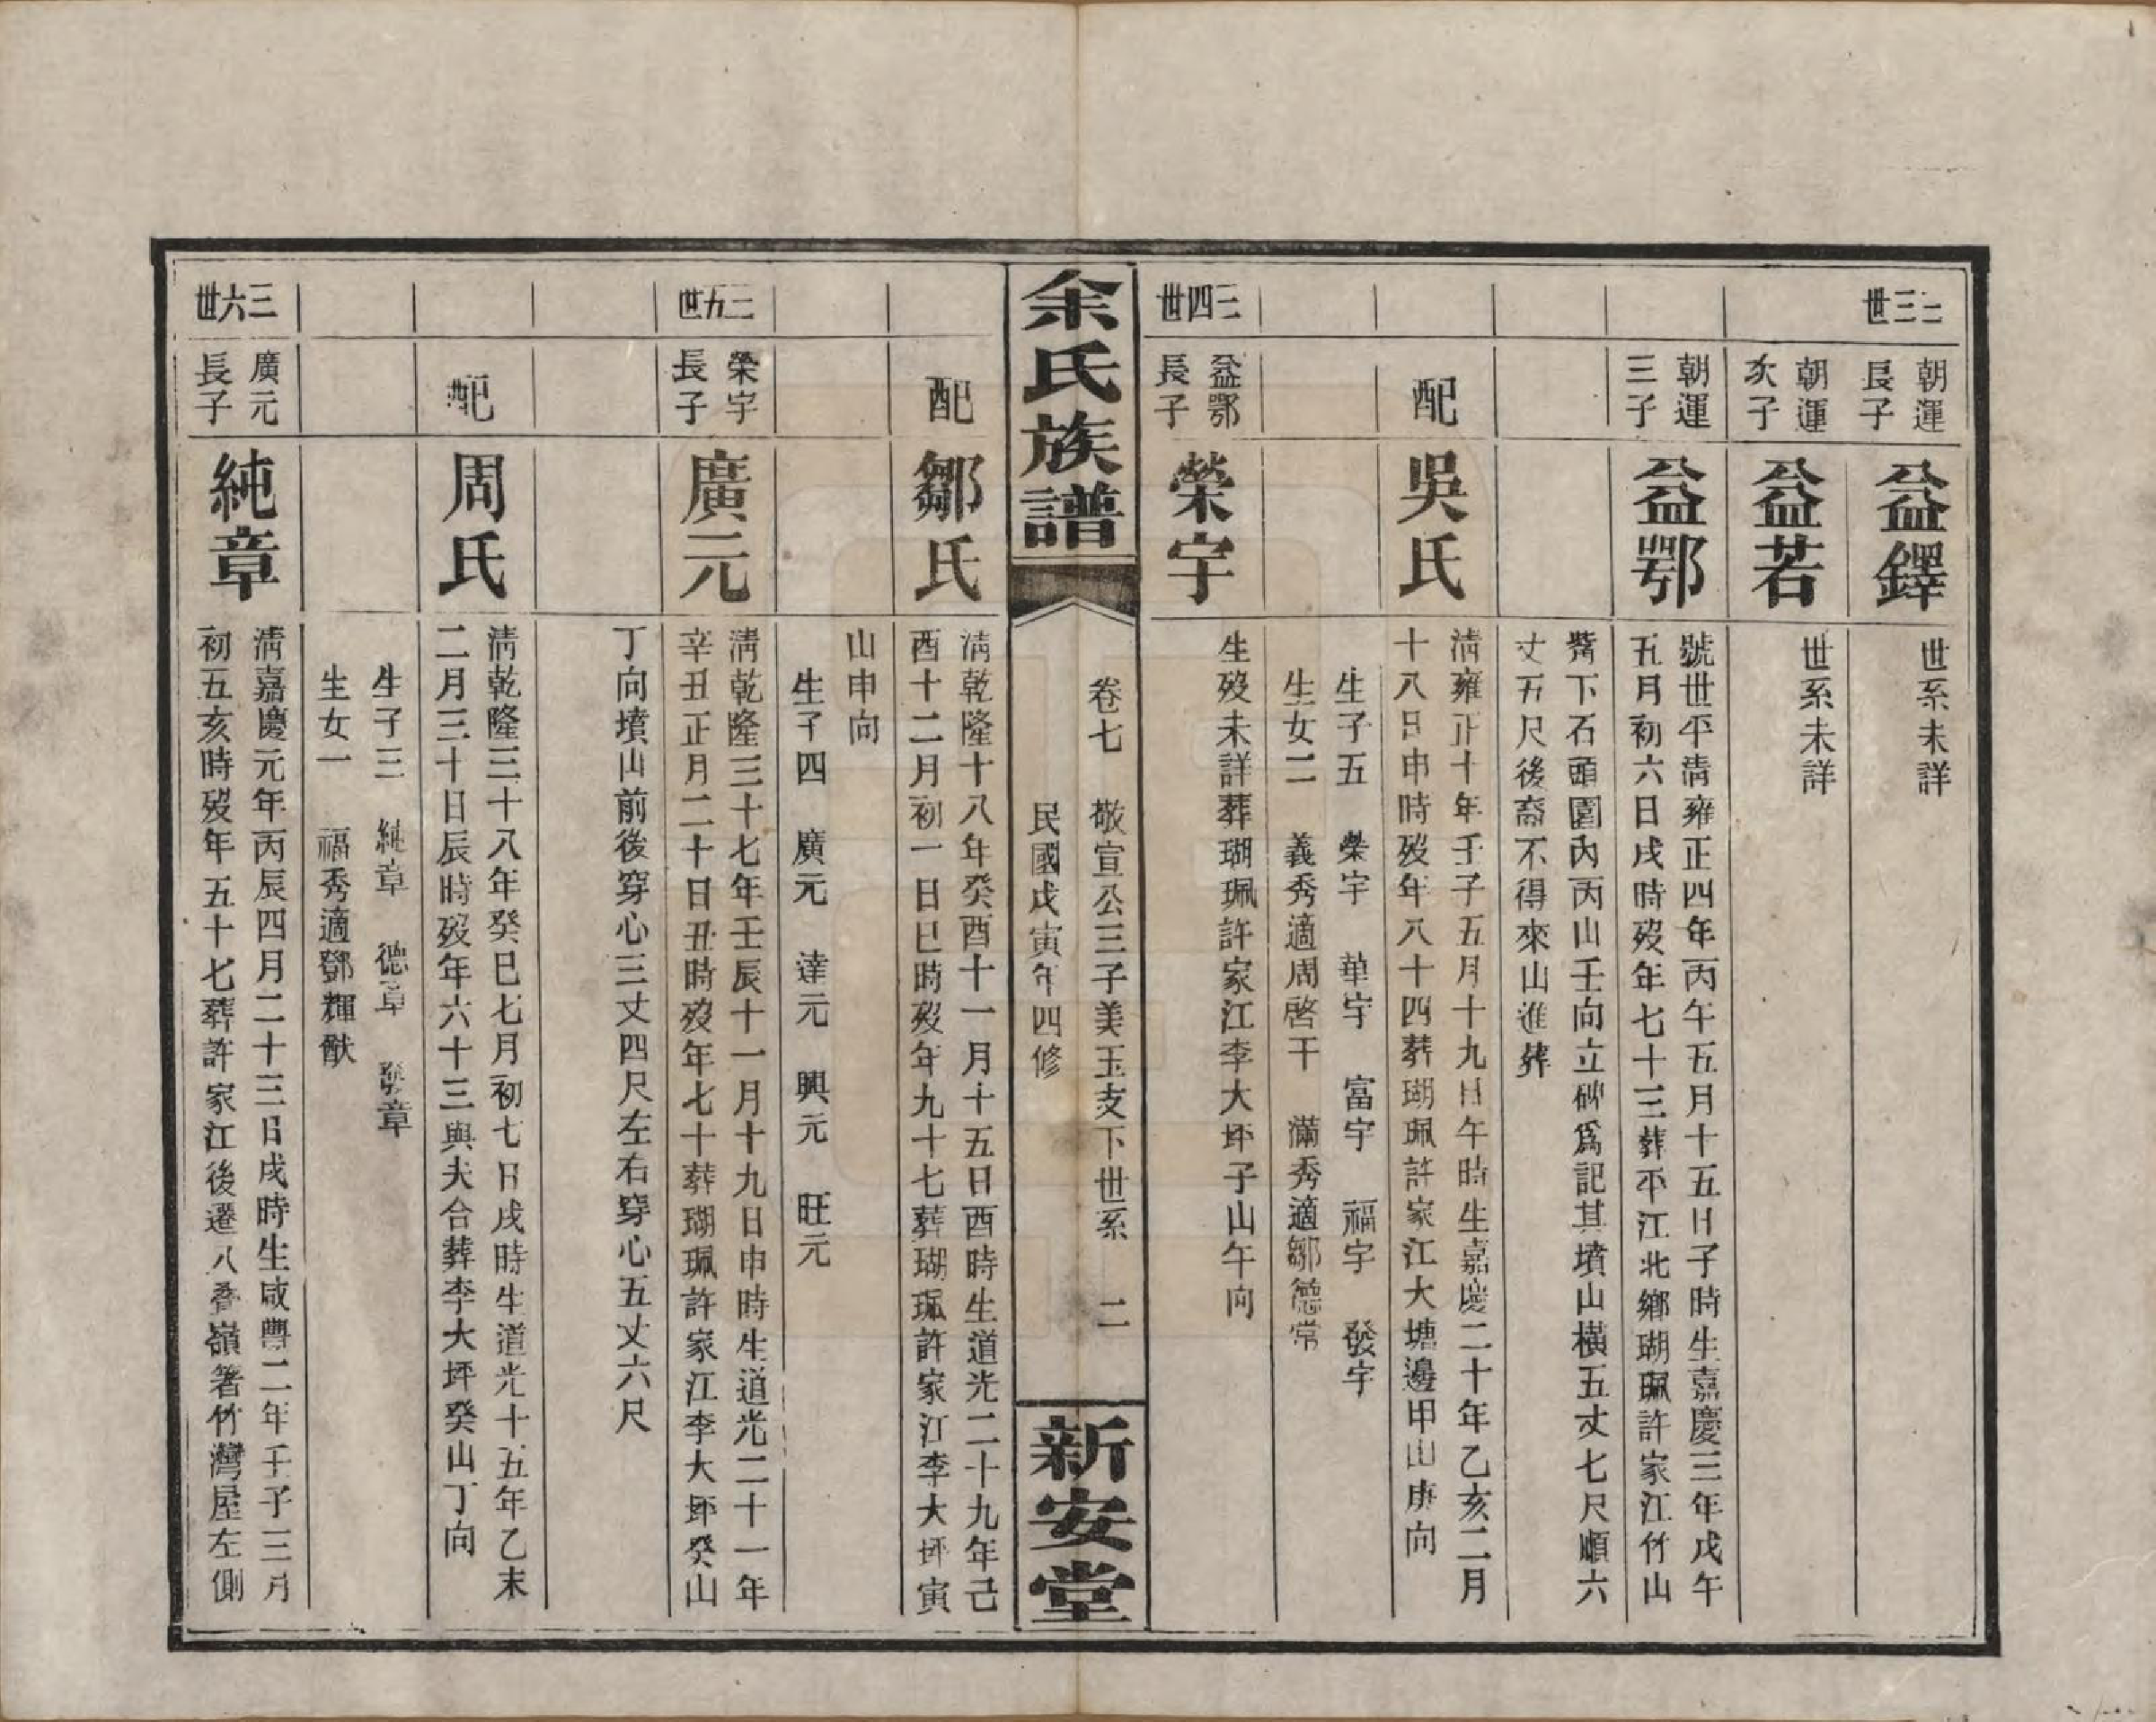 三三世
朝運長子
益鐸
世系未詳
朝運次子
益若
世系未詳
朝運三子
益鄂
號世平清雍正四年丙午五月十五日子時生嘉慶三年戊午
五月初六日戌時歿年七十三葬平江北鄉瑚珮許家江竹山
觜下石頭園內丙山壬向立碑爲記其墳山橫五丈七尺順六
丈五尺後裔不得來山進葬
配
吳氏
清雍正十年壬子五月十九日午時生嘉慶二十年乙亥二月
十八日申時歿年八十四葬瑚珮許家江大塘邊甲山庚向
生子五 榮宇 華宇 富宇 福宇 發宇
生女二 義秀適周啓干 滿秀適鄒德常
三四世
益鄂長子
榮宇
生歿未詳葬瑚珮許家江李大坪子山午向
余氏族譜
卷七 敬宣公三子美玉支下世系 二
民國戊寅年四修
新安堂
配
鄒氏
清乾隆十八年癸酉十一月十五日酉時生道光二十九年己
酉十二月初一日巳時歿年九十七葬瑚珮許家江李大坪寅
山申向
生子四 廣元 達元 興元 旺元
三五世
榮宇長子
廣元
清乾隆三十七年壬辰十一月十九日申時生道光二十一年
辛丑正月二十日丑時歿年七十葬瑚珮許家江李大坪癸山
丁向墳山前後穿心三丈四尺左右穿心五丈六尺
配
周氏
清乾隆三十八年癸巳七月初七日戌時生道光十五年乙未
二月三十日辰時歿年六十三與夫合葬李大坪癸山丁向
生子三 純章 德章 發章
生女一 福秀適鄧輝猷
三六世
廣元長子
純章
清嘉慶元年丙辰四月二十三日戌時生咸豐二年壬子三月
初五亥時歿年五十七葬許家江後遷八疊嶺箬竹灣屋左側